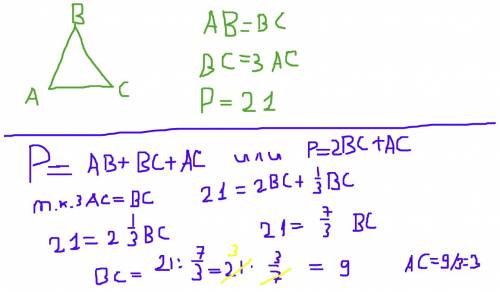 B
A
C
AB=BC
BC=3 AC
P=21
P= AB+BC+AC или P=2BC+AC
т.к. 3 AC=BC 21=2BC+ 1/3 BC
21=2 1/3 BC 21= 7/3 BC
BC= 21: 7/3 = 21 · 3/7 = 9 AC=9/3=3
3